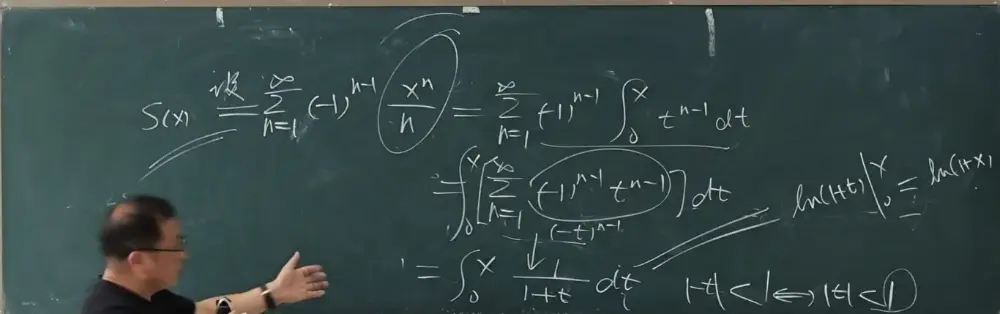 S(x) 设= ∑_{n=1}^{∞} (-1)^{n-1} x^n/n = ∑_{n=1}^{∞} (-1)^{n-1} ∫_0^x t^{n-1} dt
= ∫_0^x [∑_{n=1}^{∞} (-1)^{n-1} t^{n-1}] dt
(-t)^{n-1}
= ∫_0^x 1/(1+t) dt
ln(1+t)|_0^x = ln(1+x)
|-t|<1 ⟷ |t|<1